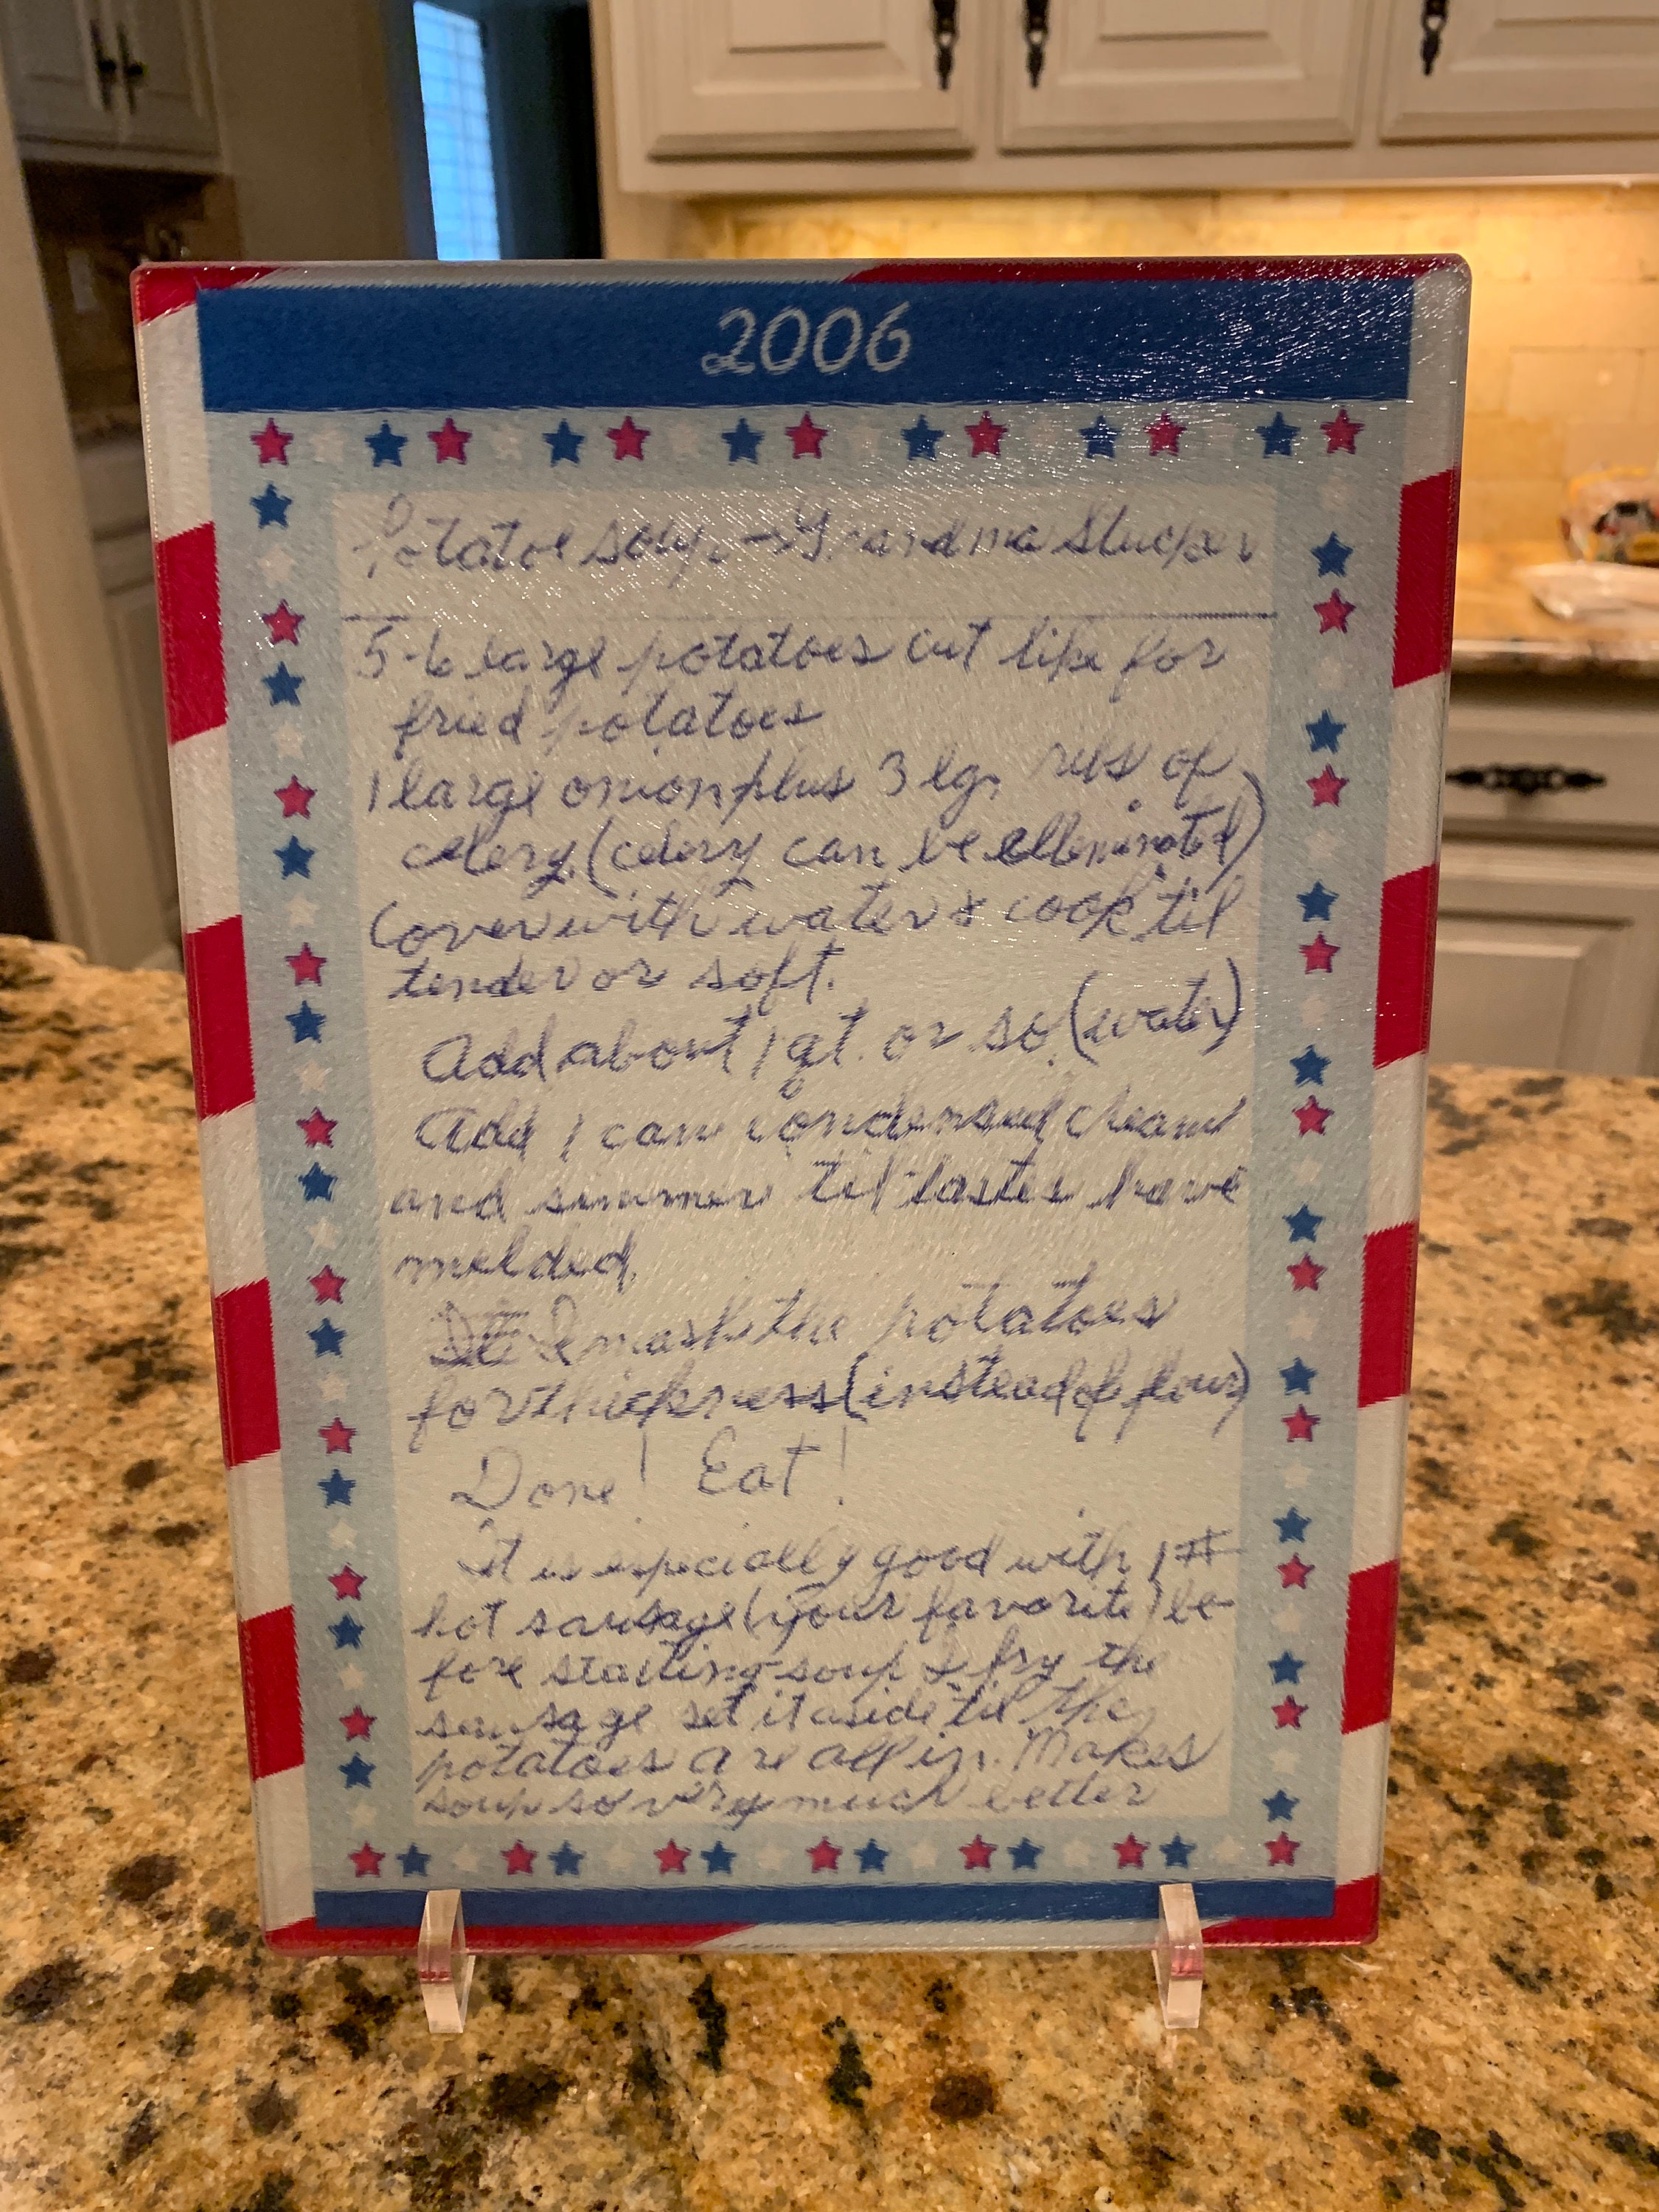 2006
Potatoe soup - Grandma Stucker
5-6 large potatoes cut like for
fried potatoes
1 large onion plus 3 lg. ribs of
celery. (celery can be elleminated)
Cover with water & cook 'til
tender or soft.
Add about 1 qt. or so. (water)
Add 1 can condensed cream
and simmer 'til tastes have
melded.
I mash the potatoes
for thickness (instead of flour)
Done! Eat!
It is especially good with 1#
hot sausage (your favorite) be-
fore starting soup I fry the
sausage set it aside 'til the
potatoes are all in. Makes
soup so very much better